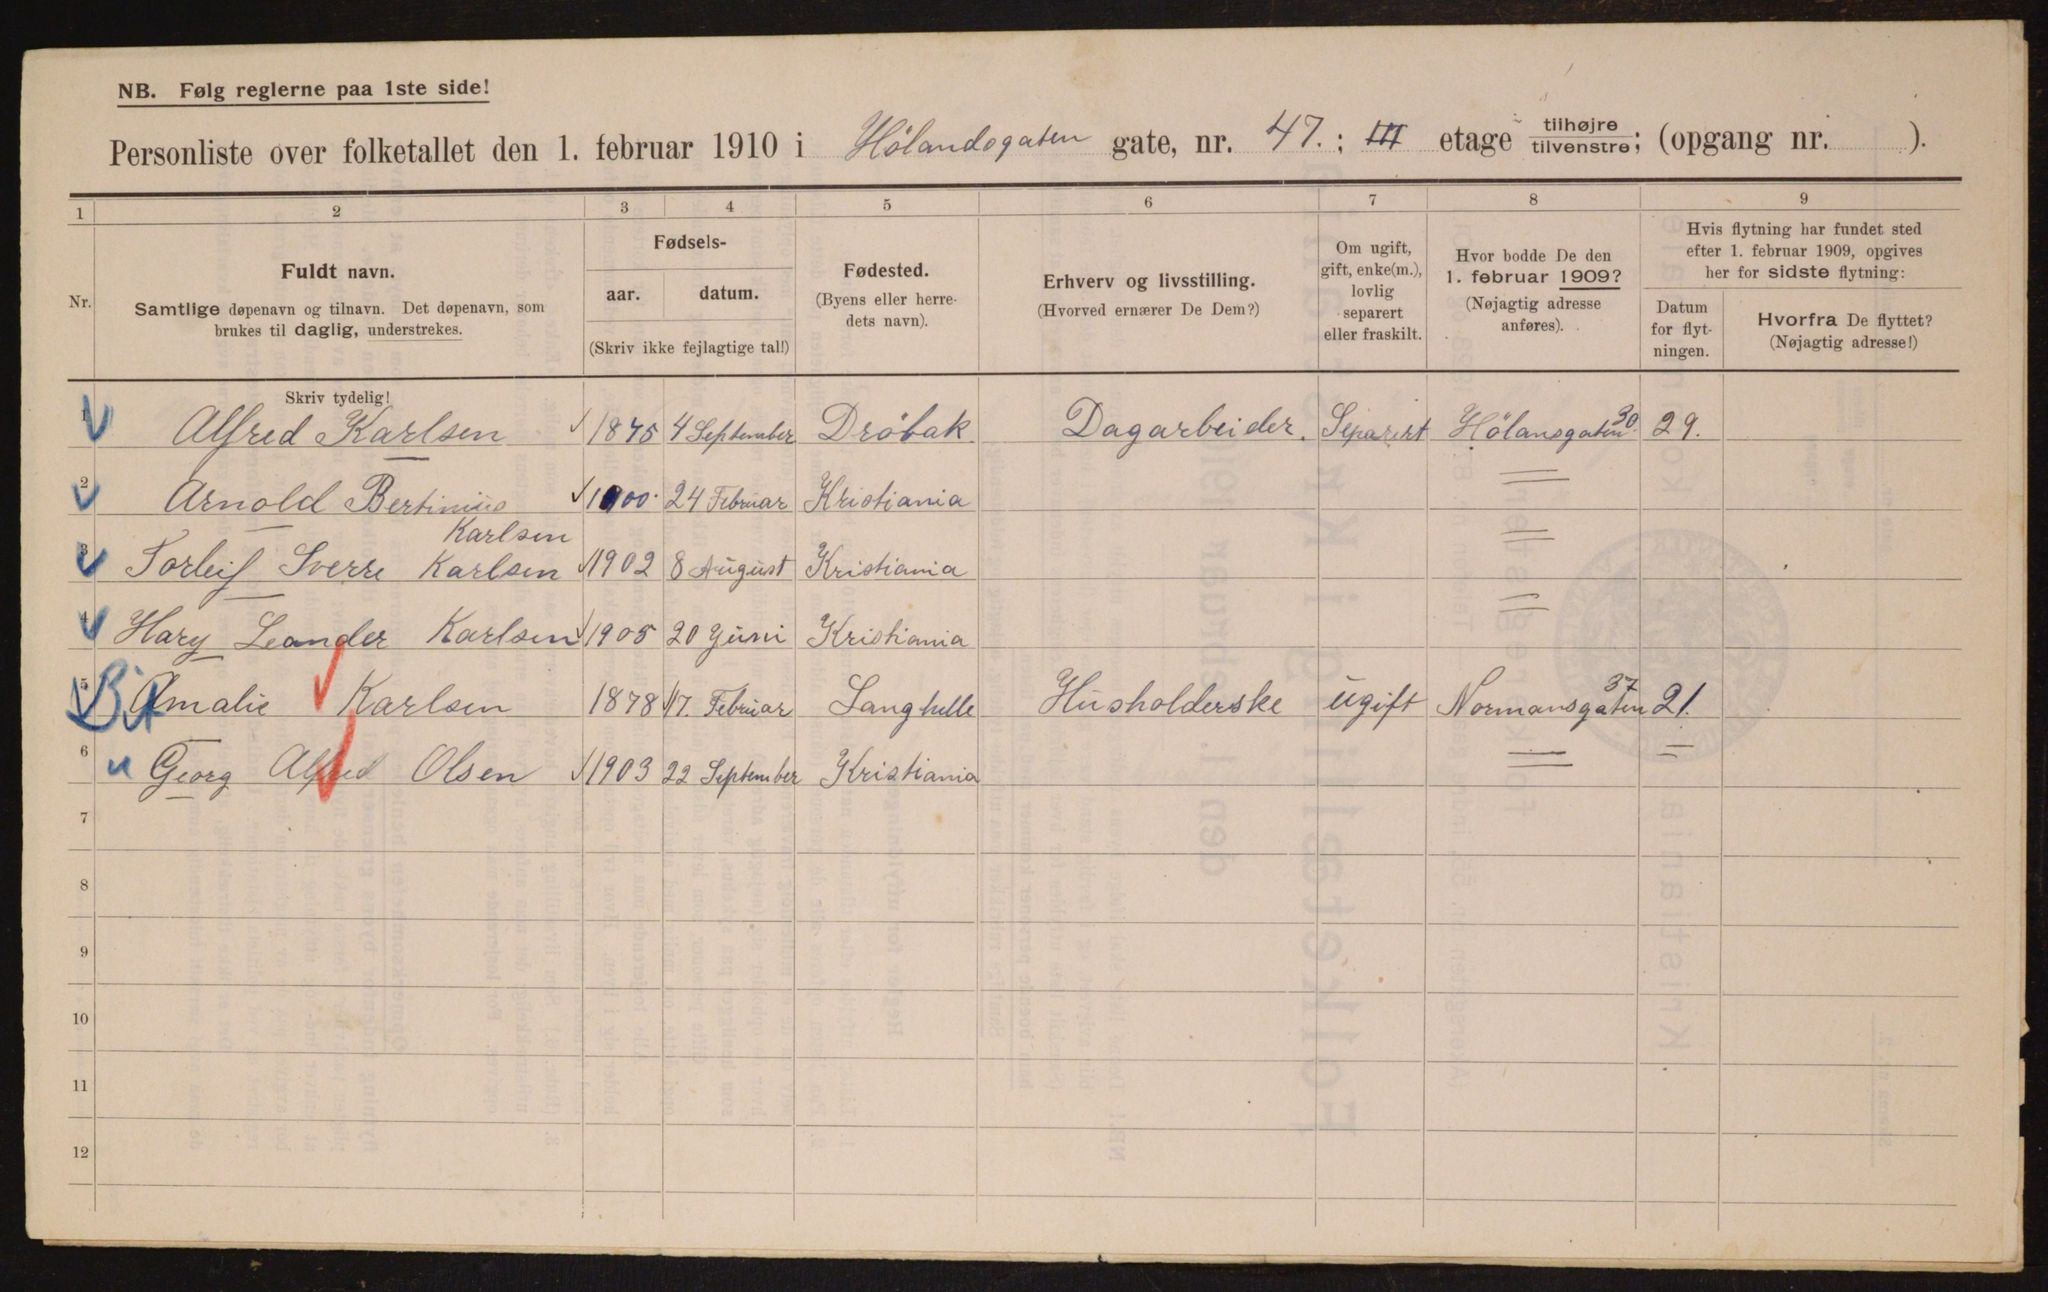 NB. Følg reglerne paa 1ste side!
Personliste over folketallet den 1. februar 1910 i Hölandsgaten gate, nr. 47. ; III etage tilhøjre tilvenstre; (opgang nr. ).
1 2 3 4 5 6 7 8 9
Nr.
Fuldt navn.
Samtlige døpenavn og tilnavn. Det døpenavn, som
brukes til daglig, understrekes.
Fødsels-
aar. datum.
(Skriv ikke fejlagtige tal!)
Fødested.
(Byens eller herre-
dets navn).
Erhverv og livsstilling.
(Hvorved ernærer De Dem?)
Om ugift,
gift, enke(m.),
lovlig
separert
eller fraskilt.
Hvor bodde De den
1. februar 1909?
(Nøjagtig adresse
anføres).
Hvis flytning har fundet sted
efter 1. februar 1909, opgives
her for sidste flytning:
Datum
for flyt-
ningen.
Hvorfra De flyttet?
(Nøjagtig adresse!)
Skriv tydelig!
1 Alfred Karlsen 1875 4 September Dröbak Dagarbeider. Separert Hölansgaten 30. 29.
2 Arnold Bertinius Karlsen 1900. 24 Februar Kristiania =
3 Torleif Sverre Karlsen 1902 8 August Kristiania =
4 Hary Leander Karlsen 1905 20 Juni Kristiania =
5 Amalie Karlsen 1878 17. Februar Sanghelle Husholderske ugift Normansgaten 37 21.
6 Georg Alfred Olsen 1903 22 September Kristiania = =
7
8
9
10
11
12